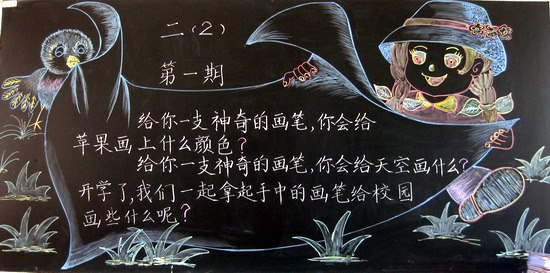 二（2）
第一期
给你一支神奇的画笔,你会给
苹果画上什么颜色?
给你一支神奇的画笔,你会给天空画什么?
开学了,我们一起拿起手中的画笔给校园
画些什么呢?